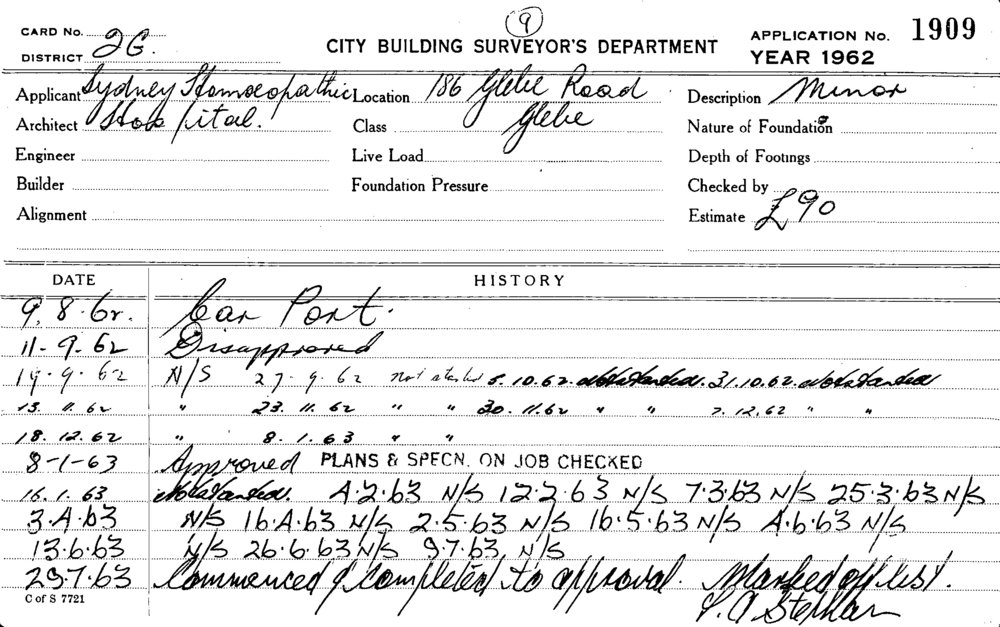 9
CARD No. CITY BUILDING SURVEYOR'S DEPARTMENT APPLICATION No. 1909
DISTRICT 2G. YEAR 1962
Applicant Sydney Homoeopathic Location 186 Glebe Road Description Minor
Architect Hospital. Class Glebe Nature of Foundation
Engineer Live Load Depth of Footings
Builder Foundation Pressure Checked by
Alignment Estimate £90
DATE HISTORY
9.8.62. Car Port.
11-9.62 Disapproved
19.9.62 N/S 27.9.62 not started 5.10.62. Not started. 31.10.62. Not started
13. 11. 62 " 23. 11. 62 " " 30. 11. 62 " " 7. 12. 62 " "
18. 12. 62 " 8. 1. 63 " "
8-1-63 Approved PLANS & SPECN. ON JOB CHECKED
16. 1. 63 Not started. 4.2.63 N/S 12.2.63 N/S 7.3.63 N/S 25.3.63 N/S
3.4.63 N/S 16.4.63 N/S 2.5.63 N/S 16.5.63 N/S 4.6.63 N/S
13.6.63 N/S 26.6.63 N/S 9.7.63 N/S
29.7.63 Commenced & Completed to approval. Marked off list.
C of S 7721